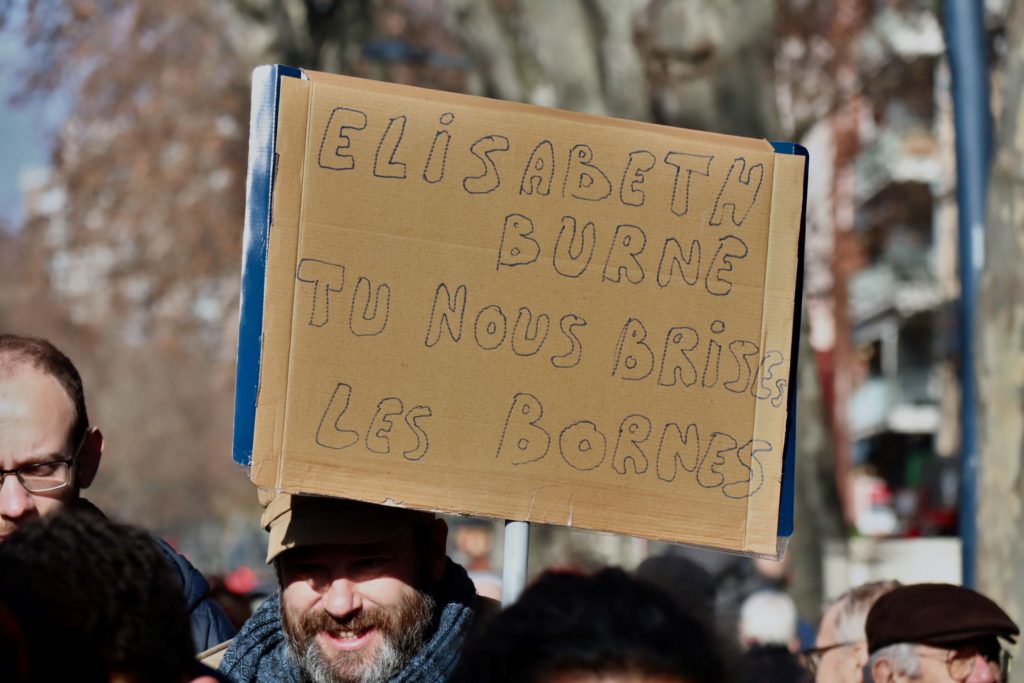 ELiSABETH
BURNE
TU NOUS BRiSES
LES BORNES